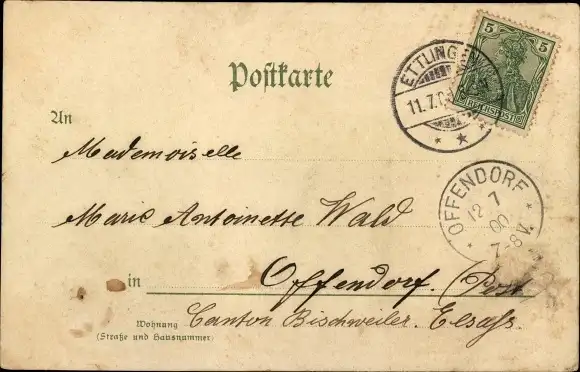 Postkarte
5 5
REICHSPOST
ETTLINGEN
11.7.0
An
Mademoiselle
OFFENDORF
12 7
00
7-8V.
Marie Antoinette Wald
in Offendorf. (Post
Wohnung Canton Bischweiler. Elsaſs.
(Straße und Hausnummer)